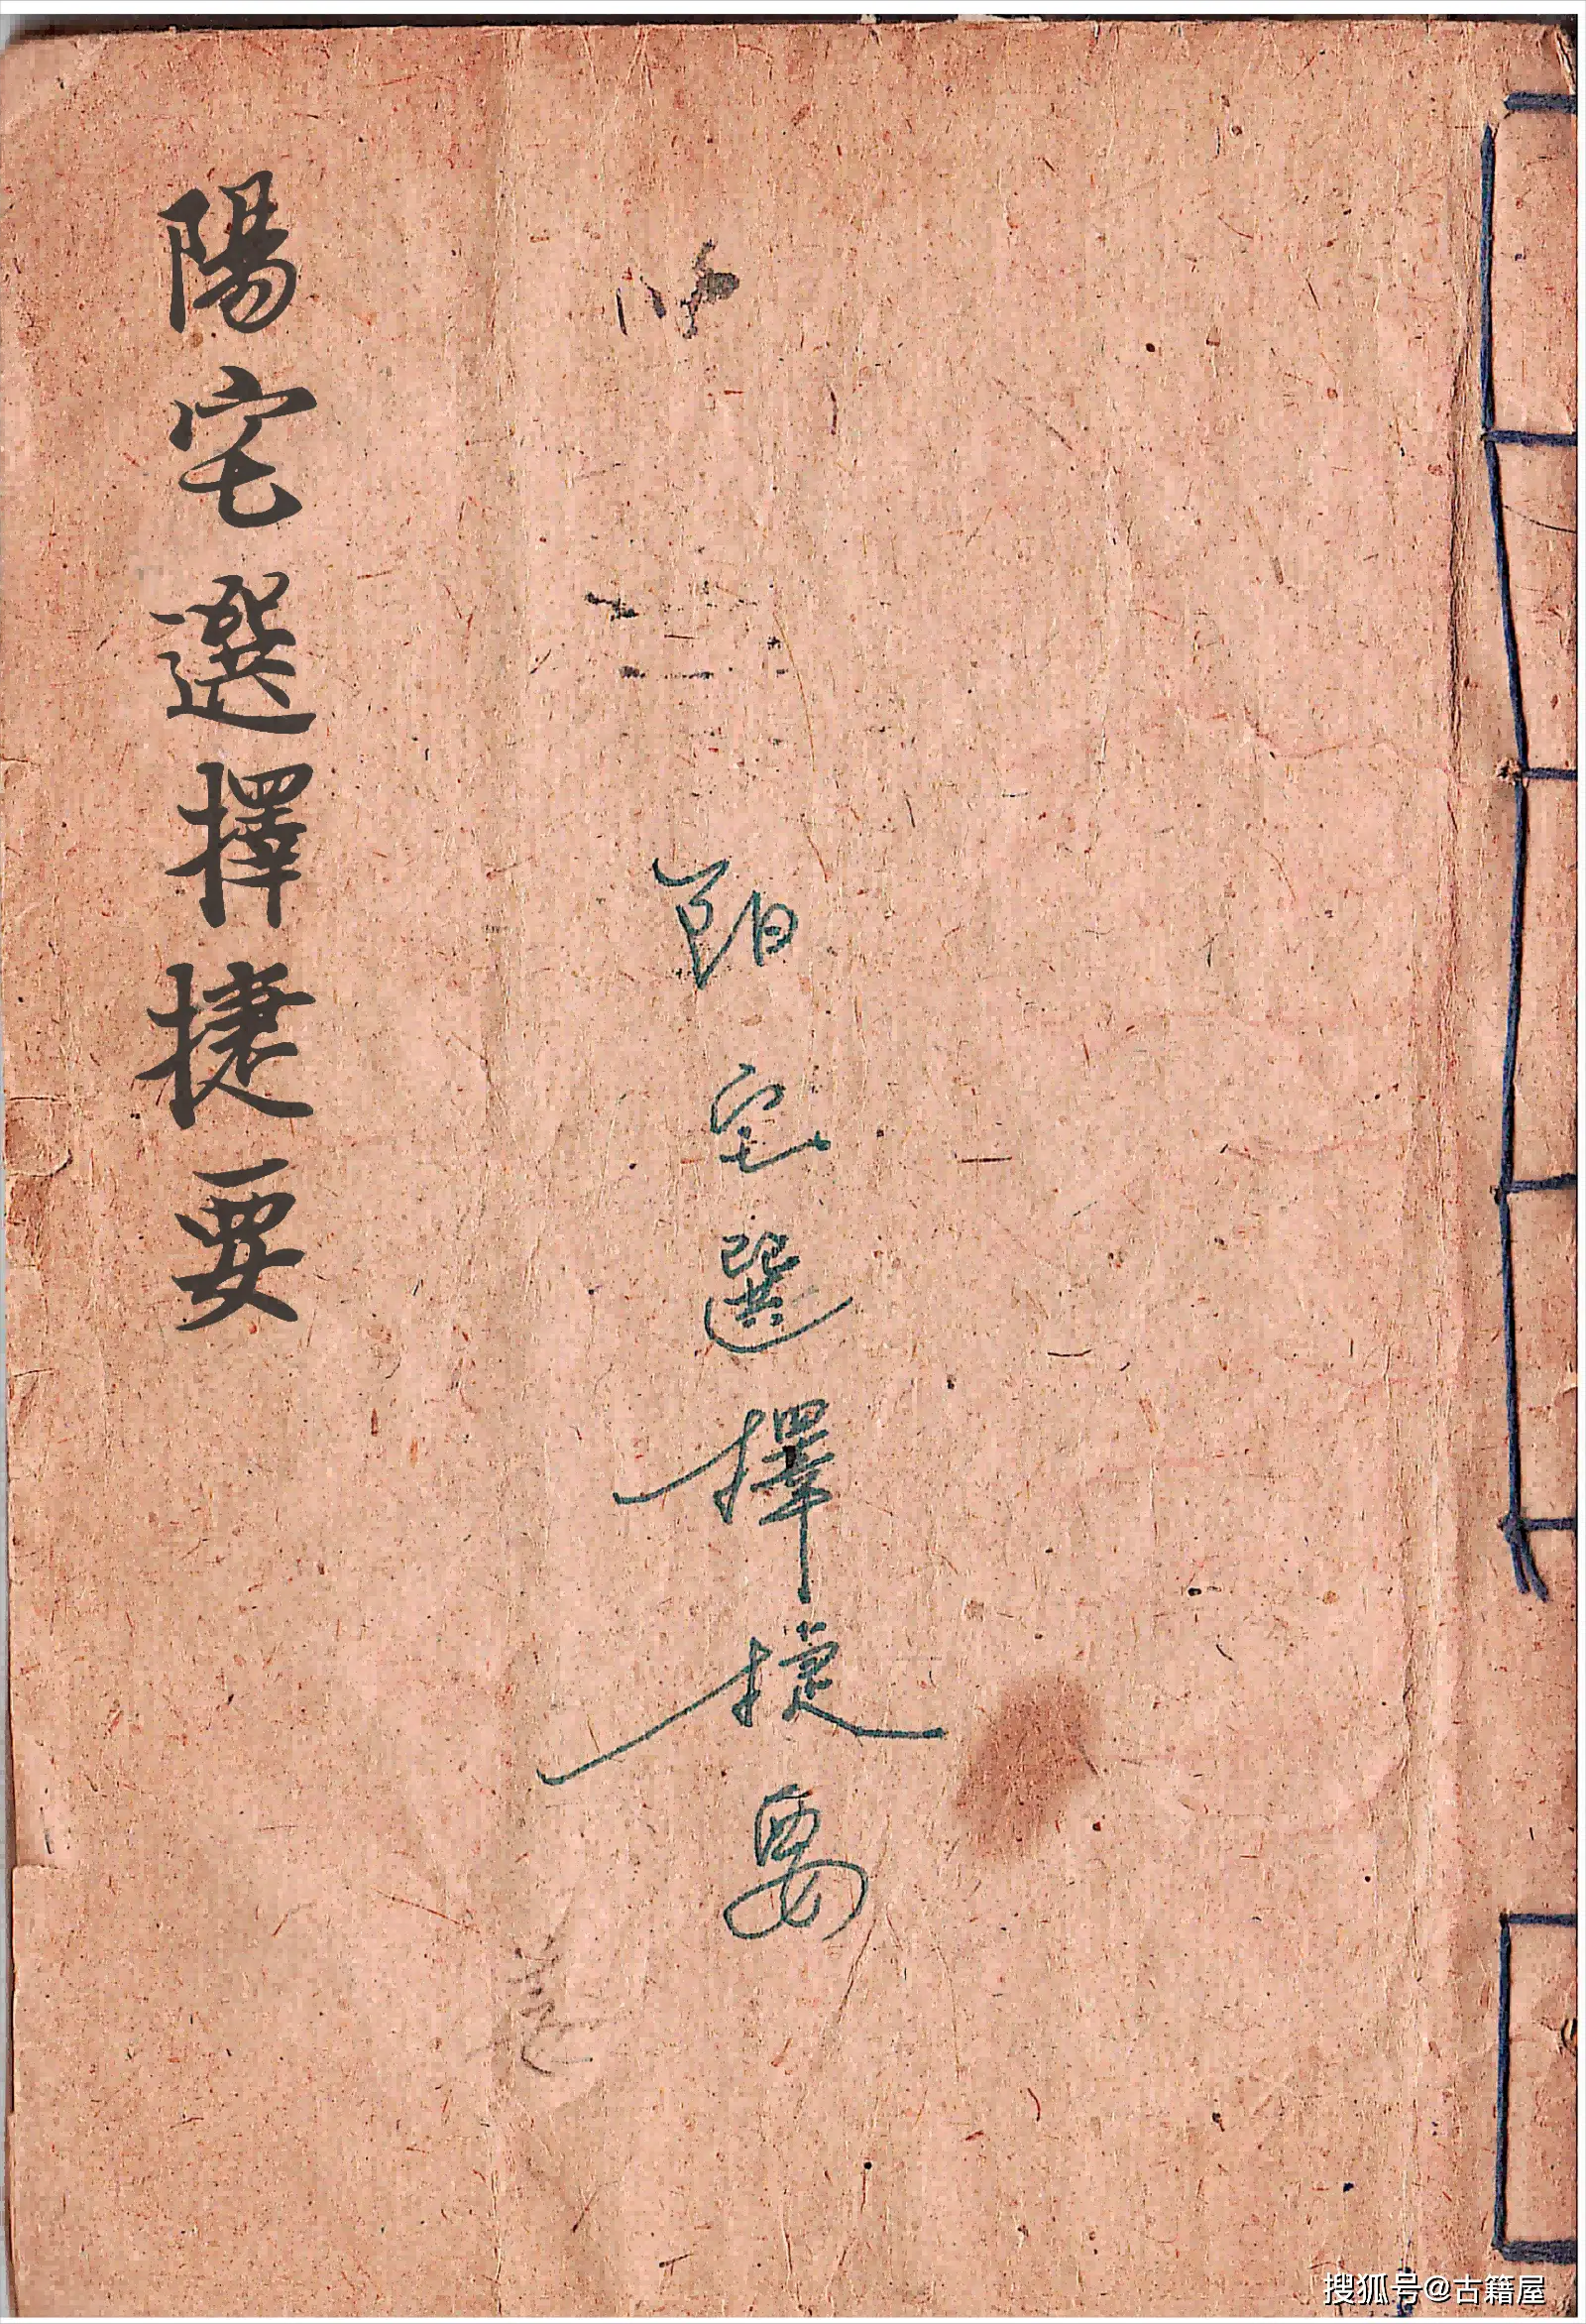 陽宅選擇捷要
阳宅選擇捷要
搜狐号@古籍屋